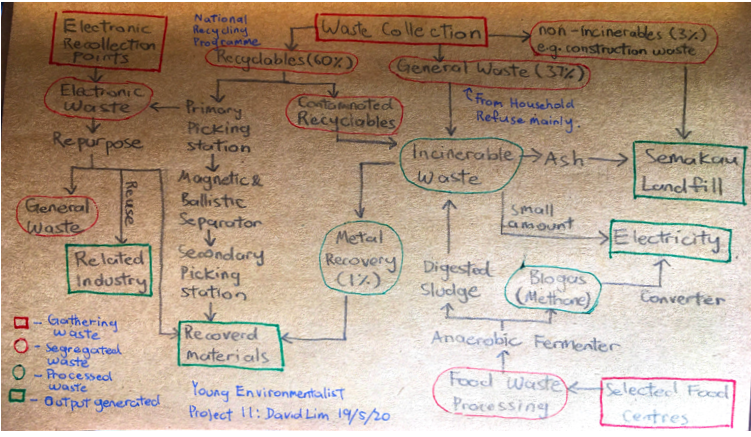 Electronic
Recollection
points
National
Recycling
Programme
Waste Collection
non-incinerables (3%)
e.g. construction waste
Recyclables (60%)
General Waste (37%)
Electronic
Waste
Primary
Picking
station
Contaminated
Recyclables
From Household
Refuse mainly.
Repurpose
Incinerable
Waste
Ash
Semakau
Landfill
General
Waste
Reuse
Magnetic &
Ballistic
Separator
small
amount
Electricity
Related
Industry
Metal
Recovery
(1%)
Secondary
Picking
station
Digested
Sludge
Biogas
(Methane)
Converter
Recoverd
materials
Anaerobic Fermenter
Food Waste
Processing
Selected Food
Centres
- Gathering
waste
- Segregated
waste
- Processed
waste
- Output generated
Young Environmentalist
Project 11: David Lim 19/5/20